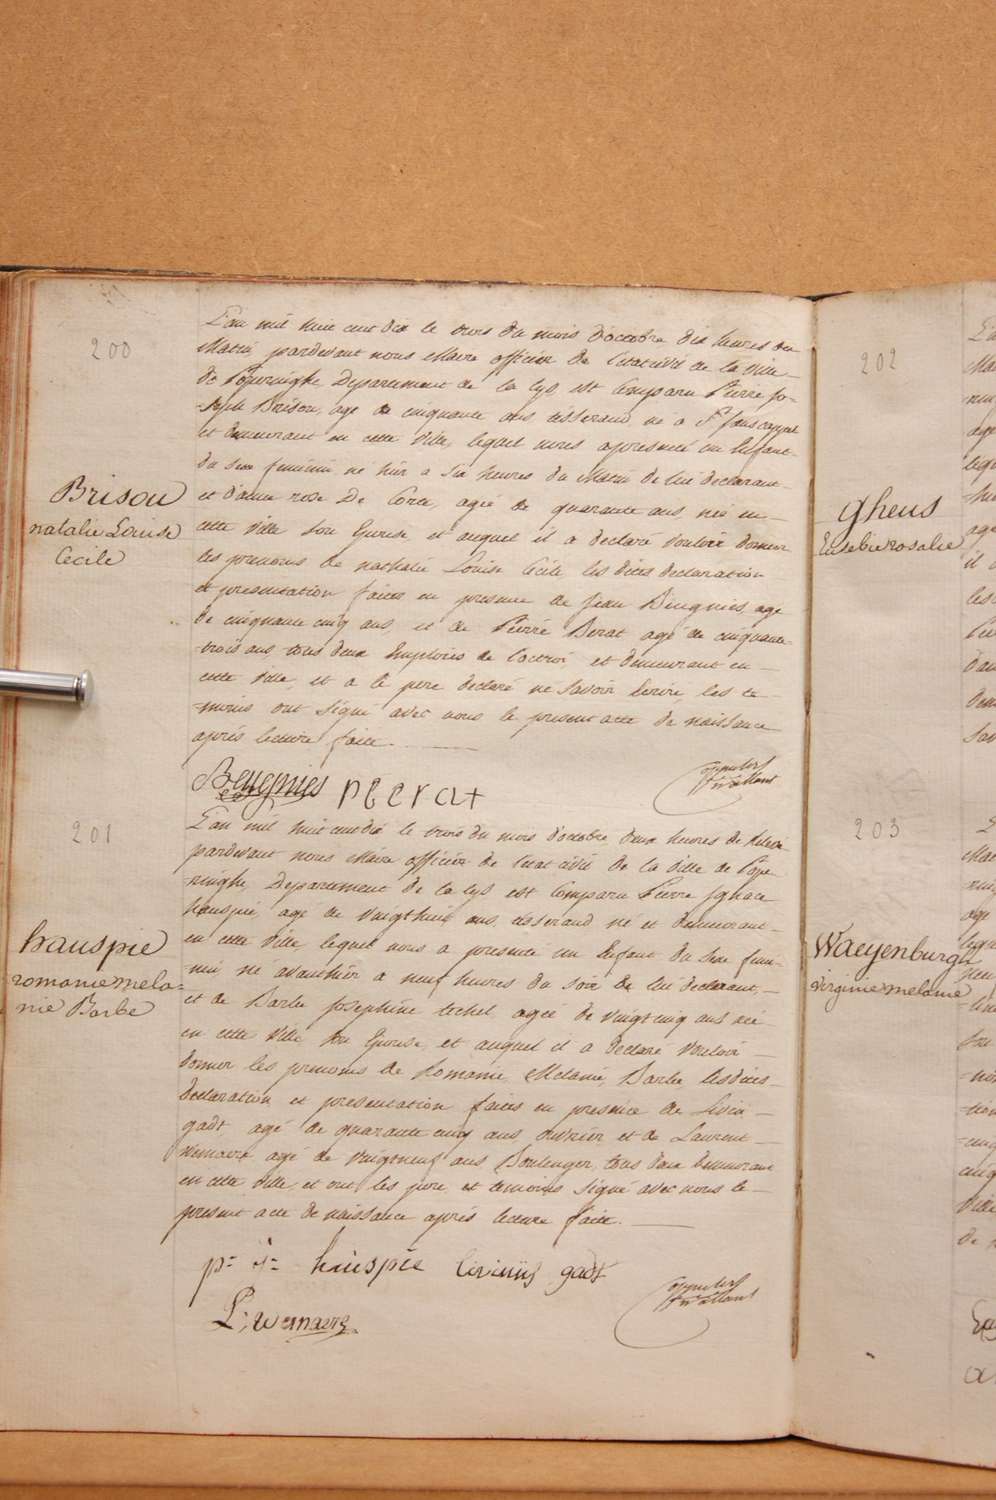 200
Brisou
natalie Louise
Cecile
L'an mil huit cent dix le trois du mois d'octobre dix heures du
Matin pardevant nous Maire officier de l'état civil de la ville
de Poperinghe Departement de la Lys, est Comparu Pierre Jo-
-seph Brisou, agé de cinquante ans tisserand né a St Jans cappel
et demeurant en cette Ville, lequel nous a presenté un Enfant
du sexe feminin né hier a six heures du Matin de lui declarant
et d'anne rose De Corte, agée de quarante ans née en
cette Ville son Epouse, et auquel il a declaré vouloir donner
les prenoms de nathalie Louise Cécile les dites declaration
et presentation faites en presence de Jean Beugnies, agé
de cinquante cinq ans, et de Pierre Berat agé de cinquante
trois ans tous deux Employés de l'octroi et demeurant en
cette Ville, et a le pere declaré ne savoir Ecrire, les te-
-moins ont signé avec nous le present acte de naissance
après lecture faite.
Beugnies
201
hauspie
romanie mela-
nie Barbe
L'an mil huit cent dix le trois du mois d'octobre deux heures de Relevée
pardevant nous Maire officier de l'état civil de la ville de Pope-
ringhe, Departement de la Lys est Comparu Pierre Ignace
hauspié, agé de vingthuit ans, tisserand né et demeurant
en cette Ville lequel nous a presenté un Enfant du sexe femi-
nin né avanthier a neuf heures du soir de lui declarant,
et de Barbe Josephine techel agée de vingtcinq ans née
en cette Ville son Epouse, et auquel il a declaré vouloir
donner les prenoms de Romanie, Melanie, Barbe les dites
declaration et presentation faites en presence de Livin
gadt agé de quarante cinq ans ouvrier et de Laurent
Wemaere agé de vingtneuf ans Boulenger, tous deux demeurant
en cette Ville, et ont les pere et temoins signé avec nous le
present acte de naissance après lecture faite.
hauspie livinus gadt
L: wemaere
202
gheus
Eusebie rosalie
203
Waeyenburg
virginie melanie